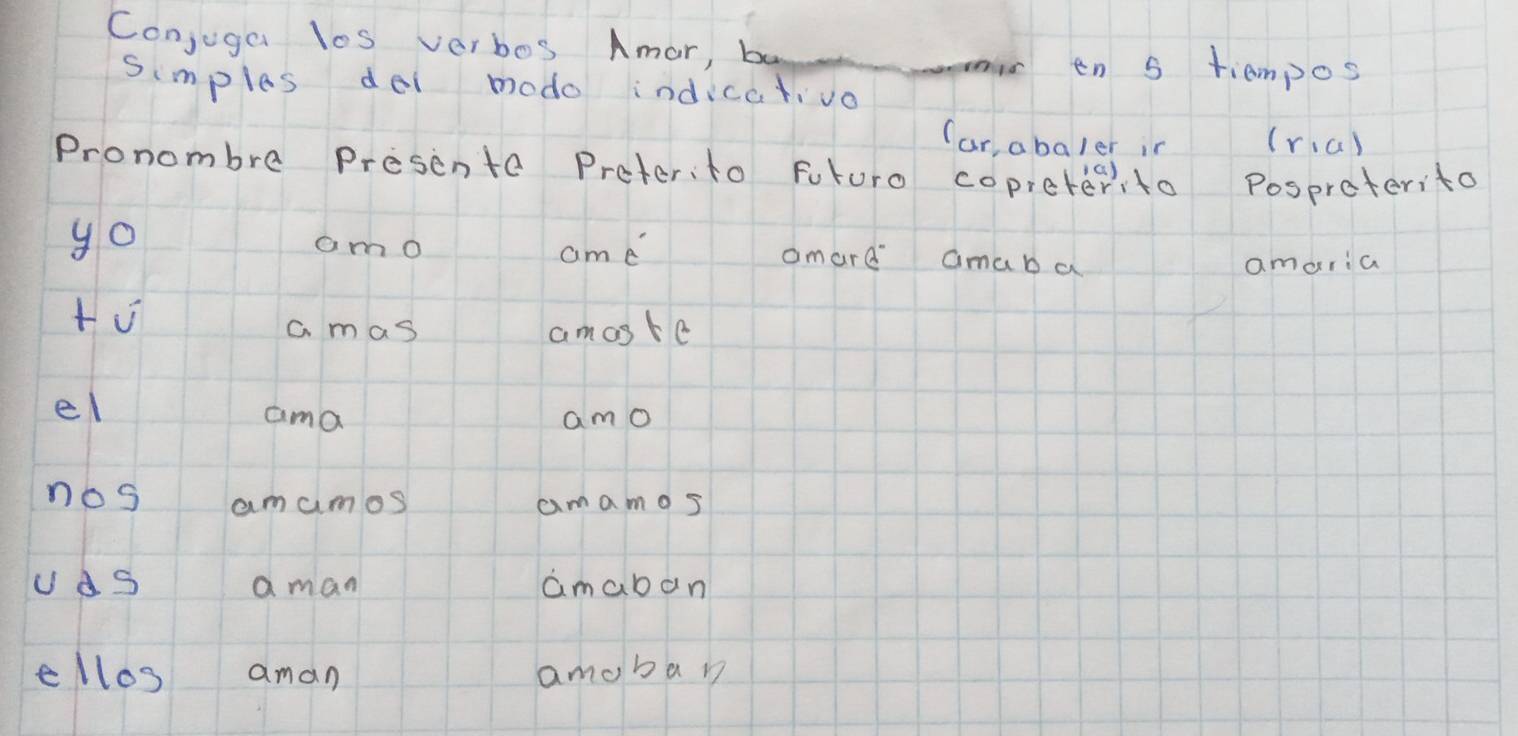 Conjuga los verbos Amar, en 5 tiempos
simples del modo indicativo
(ar, aba/er ir (ria)
Pronombre Presente Preterito Futuro copreterito Pospreterito
ia)
yo amo amé amaré amaba amaria
tú amas amaste
el ama amo
nos amamos amamos
uds aman amaban
ellos aman amaban